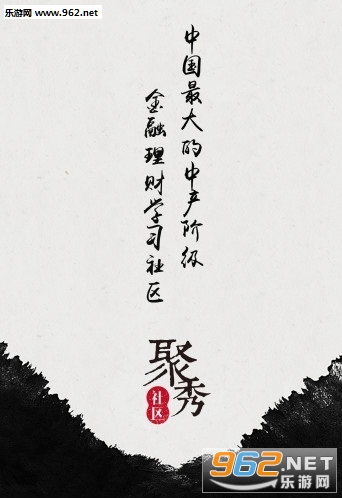 乐游网 www.962.net
中国最大的中产阶级
金融理财学习社区
聚秀
社区
962.NET
乐游网